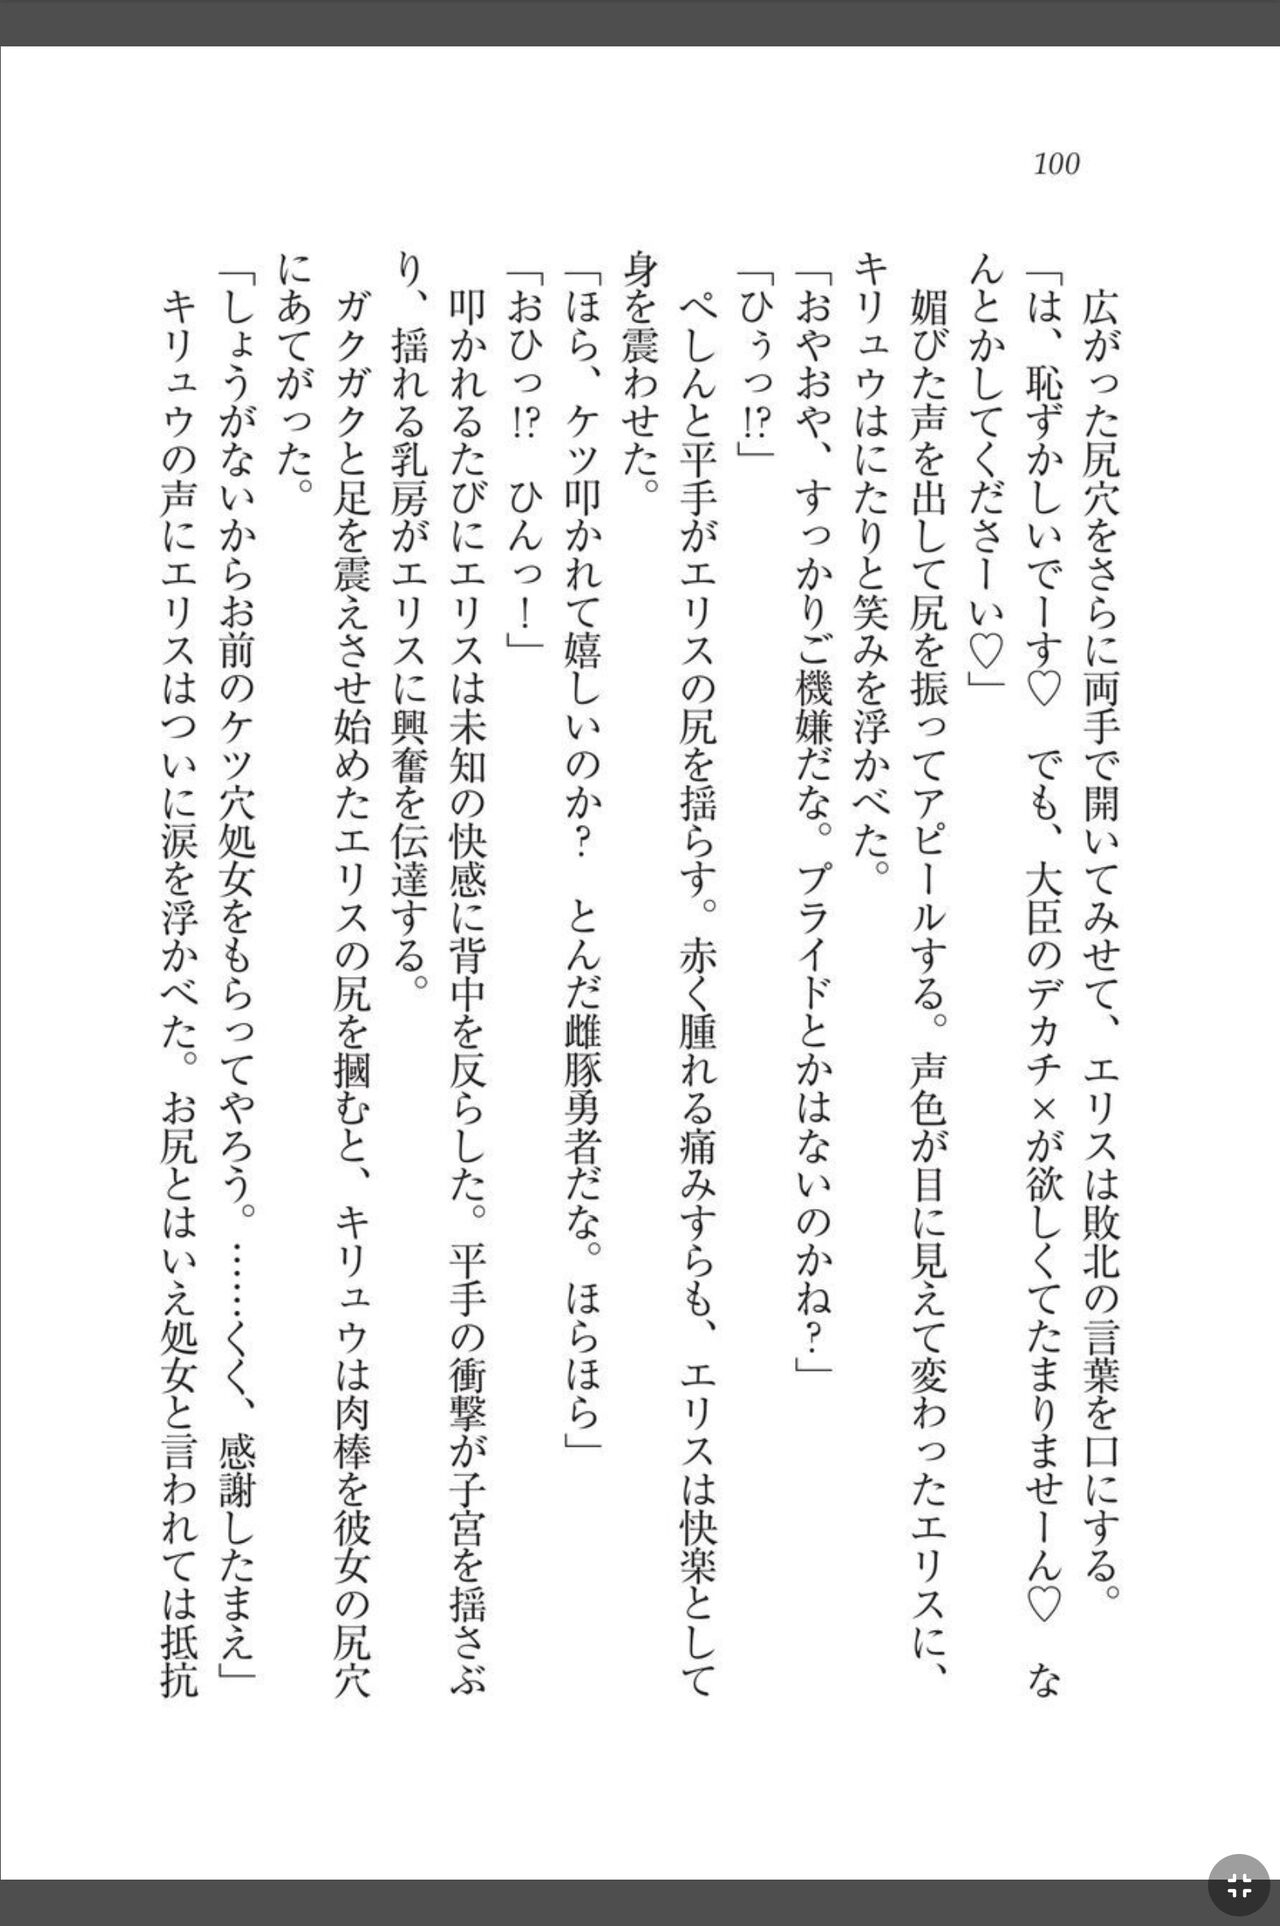 100
広がった尻穴をさらに両手で開いてみせて、エリスは敗北の言葉を口にする。
「は、恥ずかしいでーす♡　でも、大臣のデカチ×が欲しくてたまりませーん♡　な
んとかしてくださーい♡」
媚びた声を出して尻を振ってアピールする。声色が目に見えて変わったエリスに、
キリュウはにたりと笑みを浮かべた。
「おやおや、すっかりご機嫌だな。プライドとかはないのかね？」
「ひぅっ!?」
ぺしんと平手がエリスの尻を揺らす。赤く腫れる痛みすらも、エリスは快楽として
身を震わせた。
「ほら、ケツ叩かれて嬉しいのか？　とんだ雌豚勇者だな。ほらほら」
「おひっ!?　ひんっ！」
叩かれるたびにエリスは未知の快感に背中を反らした。平手の衝撃が子宮を揺さぶ
り、揺れる乳房がエリスに興奮を伝達する。
ガクガクと足を震えさせ始めたエリスの尻を摑むと、キリュウは肉棒を彼女の尻穴
にあてがった。
「しょうがないからお前のケツ穴処女をもらってやろう。……くく、感謝したまえ」
キリュウの声にエリスはついに涙を浮かべた。お尻とはいえ処女と言われては抵抗